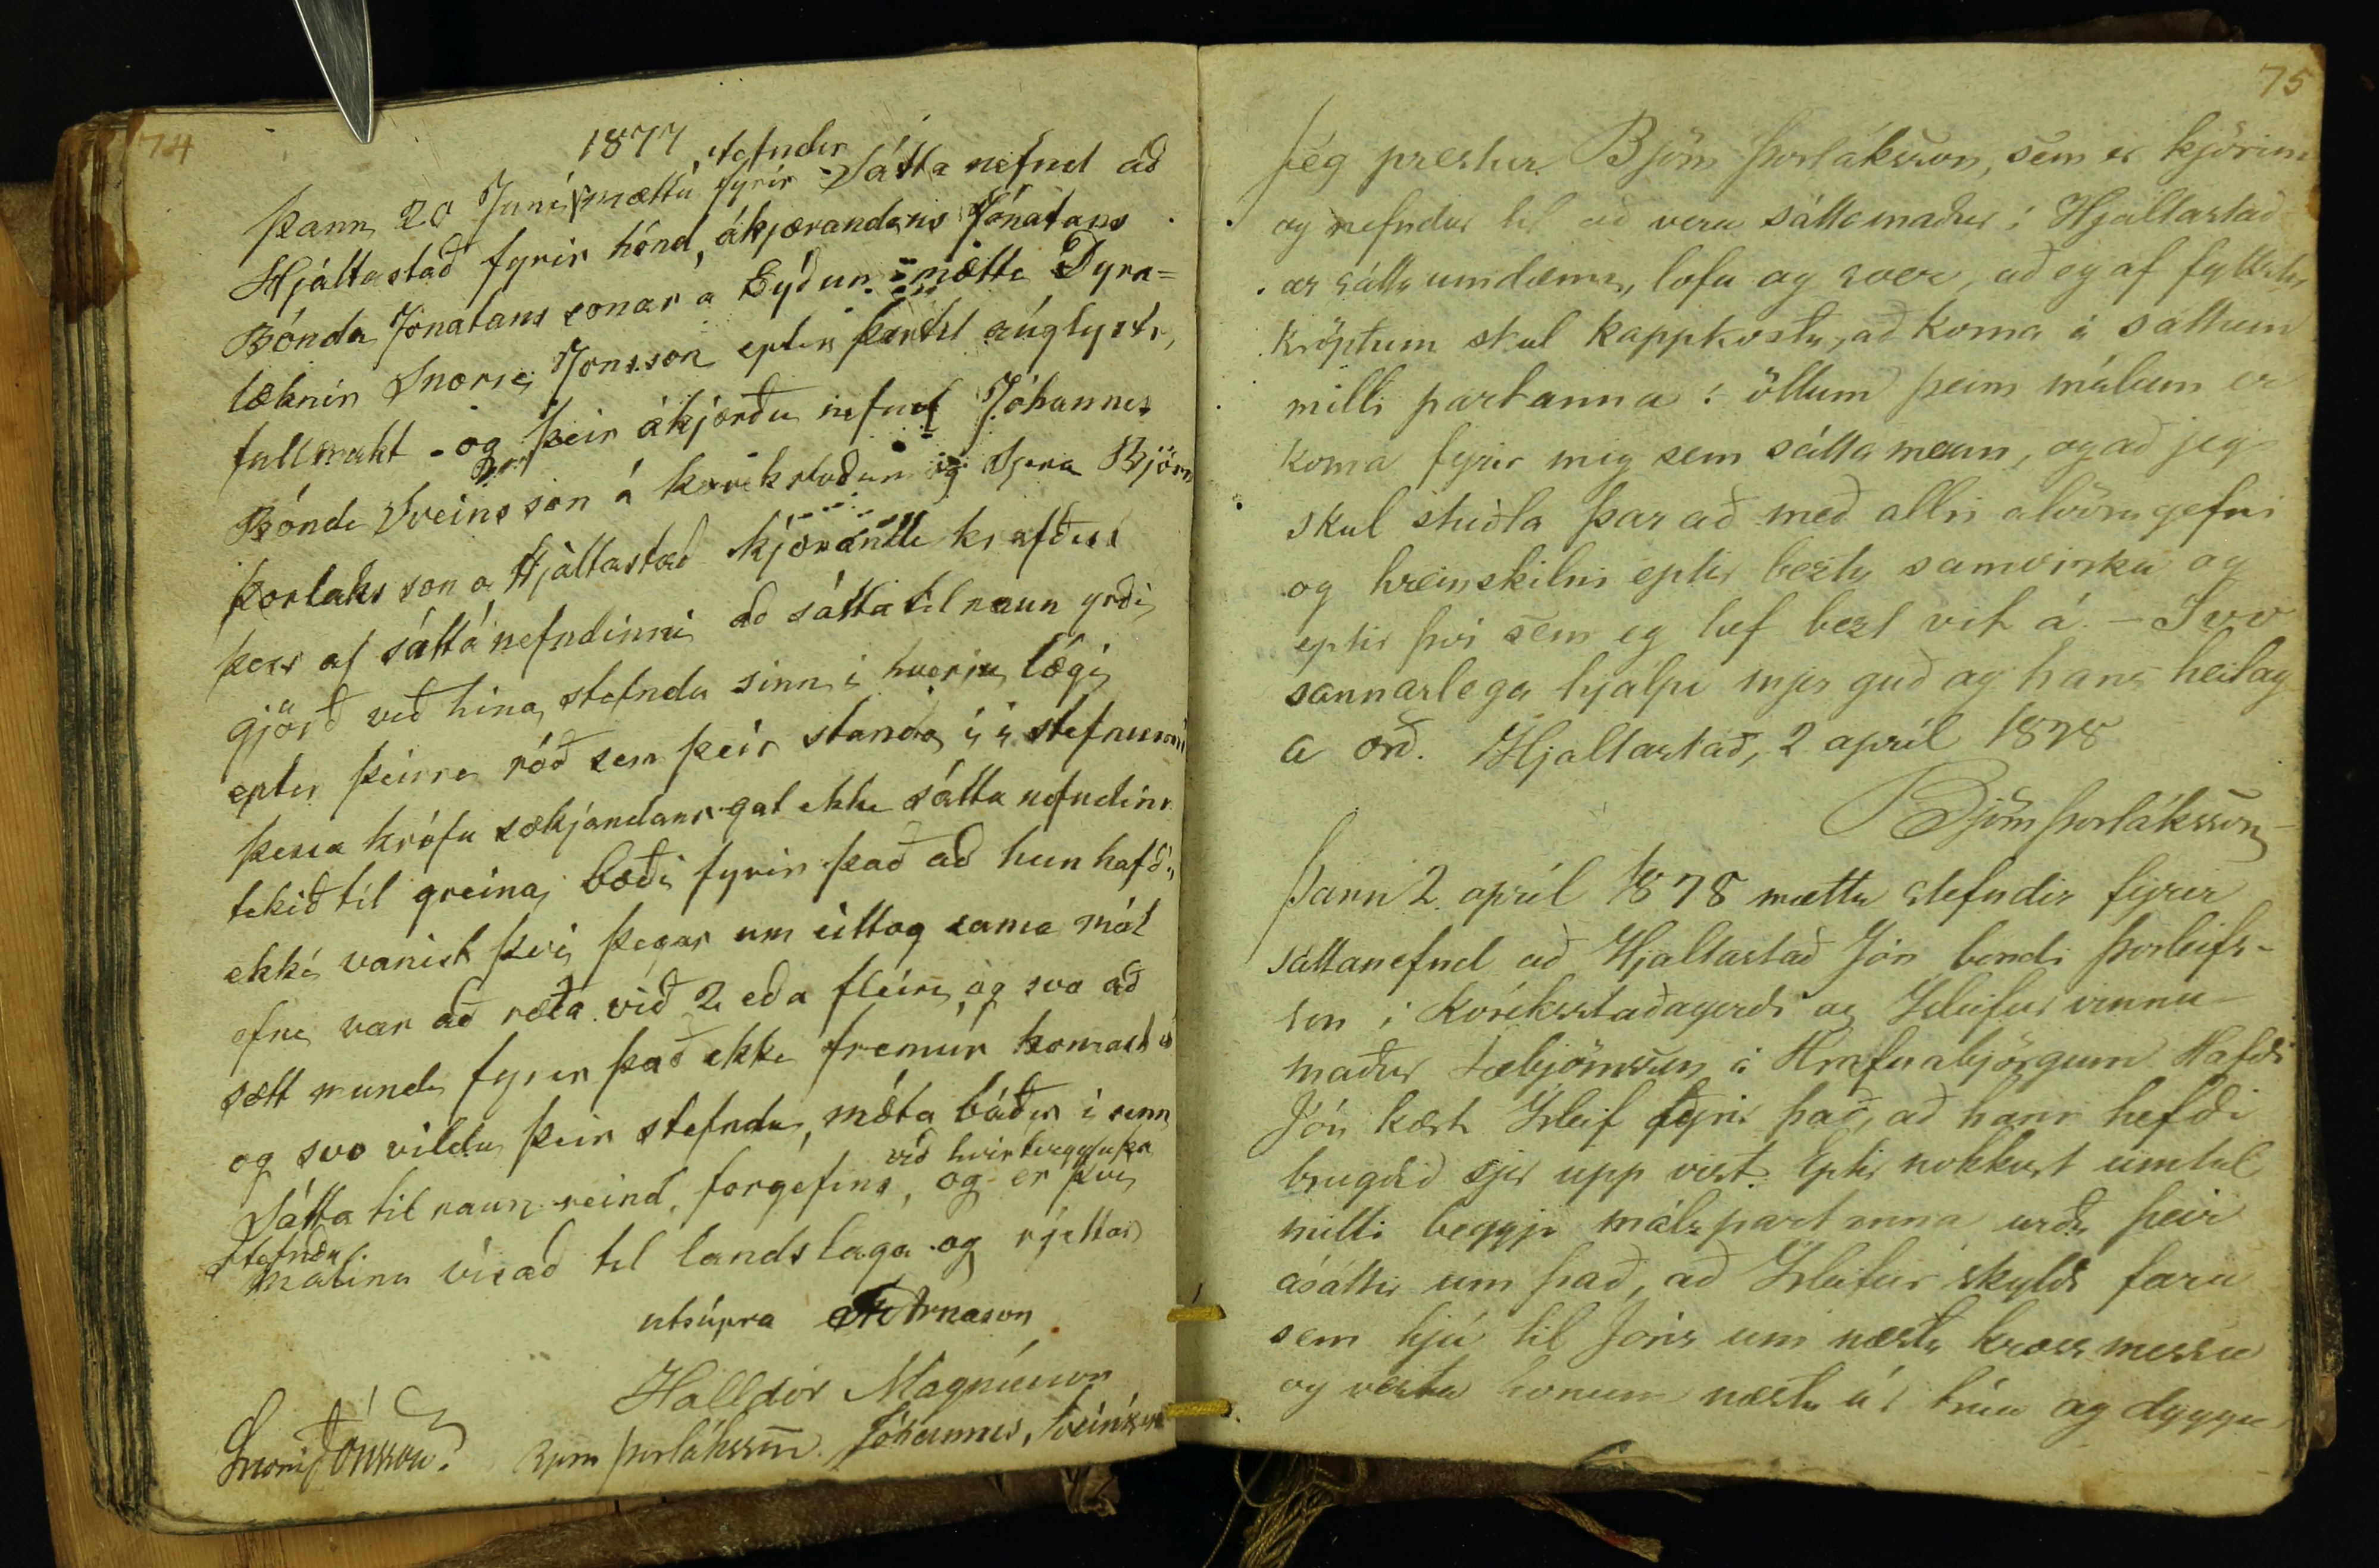 74
1877
stefndir
Þann 20 Juni mættu fyrir Sátta nefnd að
Hjaltastað fyrir hönd ákjærandans Jónatans
Bónda Jónatans sonar á Eyðum mætti Dyra=
læknir Snorri Jonsson eptir þartil auglystri
fullmakt - og þeir ákjærðu nefnil Jóhannes
Bónde Sveins son á Koreksstöðum og Sjera Björn
Þorlaks son a Hjaltastað kjærandi krafðist
þess af sáttanefndinni að sátta til raun yrði
gjörð við hina stefndu sinn i hverju lægi
eptir þeirre röð sem þeir standa i stefnunni
þessa kröfu sækjandans gat ekke sátta nefndinn
tekið til greina, bæði fyrir það að hun hafði
ekki vanist því þegar um eitt og sama mál
efne var að ræða við 2 eða fleiri, og svo að
sætt munde fyrir það ekke fremur komast á
og svo vildu þeir stefndu, mæta báðir i senn
við hvirtveggju þá
Sátta til raun reind, forgefins, og er því
stefndu
málinu vísað til landslaga og rjettar
utsupra Arnason
Halldór Magnússon
Snorri Jónsson. Björn Þorláksson. Jóhannes Sveinsson
75
Jeg prestur Björn Þorláksson, sem er kjörinn
og nefndur til að vera sáttamaður i Hjaltastað
ar sátta umdæmi, lofa og sver, að eg af fyllstu
kröptum skal kappkosta, að koma á sáttum
milli partanna i öllum þeim málum er
koma fyrir mig sem sátta mann, og að jeg
skal stuðla þar að með allri alvörugefni
og hreinskilni eptir beztu samvizku og
eptir því sem eg hef bezt vit á. - Svo
sannarlega hjálpi mjer guð og hans heilag
a orð. Hjaltastað, 2 apríl 1878
Björn Þorláksson
Þann 2. apríl 1878 mættu stefndir fyrir
sáttanefnd að Hjaltastað Jón bondi Þorleifs-
son i Kóreksstaðagerði og Ísleifur vinnu-
maður Sæbjörnsson á Hrafnabjörgum. Hafði
Jón kært Ísleif fyrir það, að hann hefði
brugðið sjer upp vist. Eptir nokkurt umtal
milli beggja málspartanna urðu þeir
ásáttir um það, að Ísleifur skyldi fara
sem hjú til Jóns um næstu kross messu
og veita honum næsta ár trúa og dygga